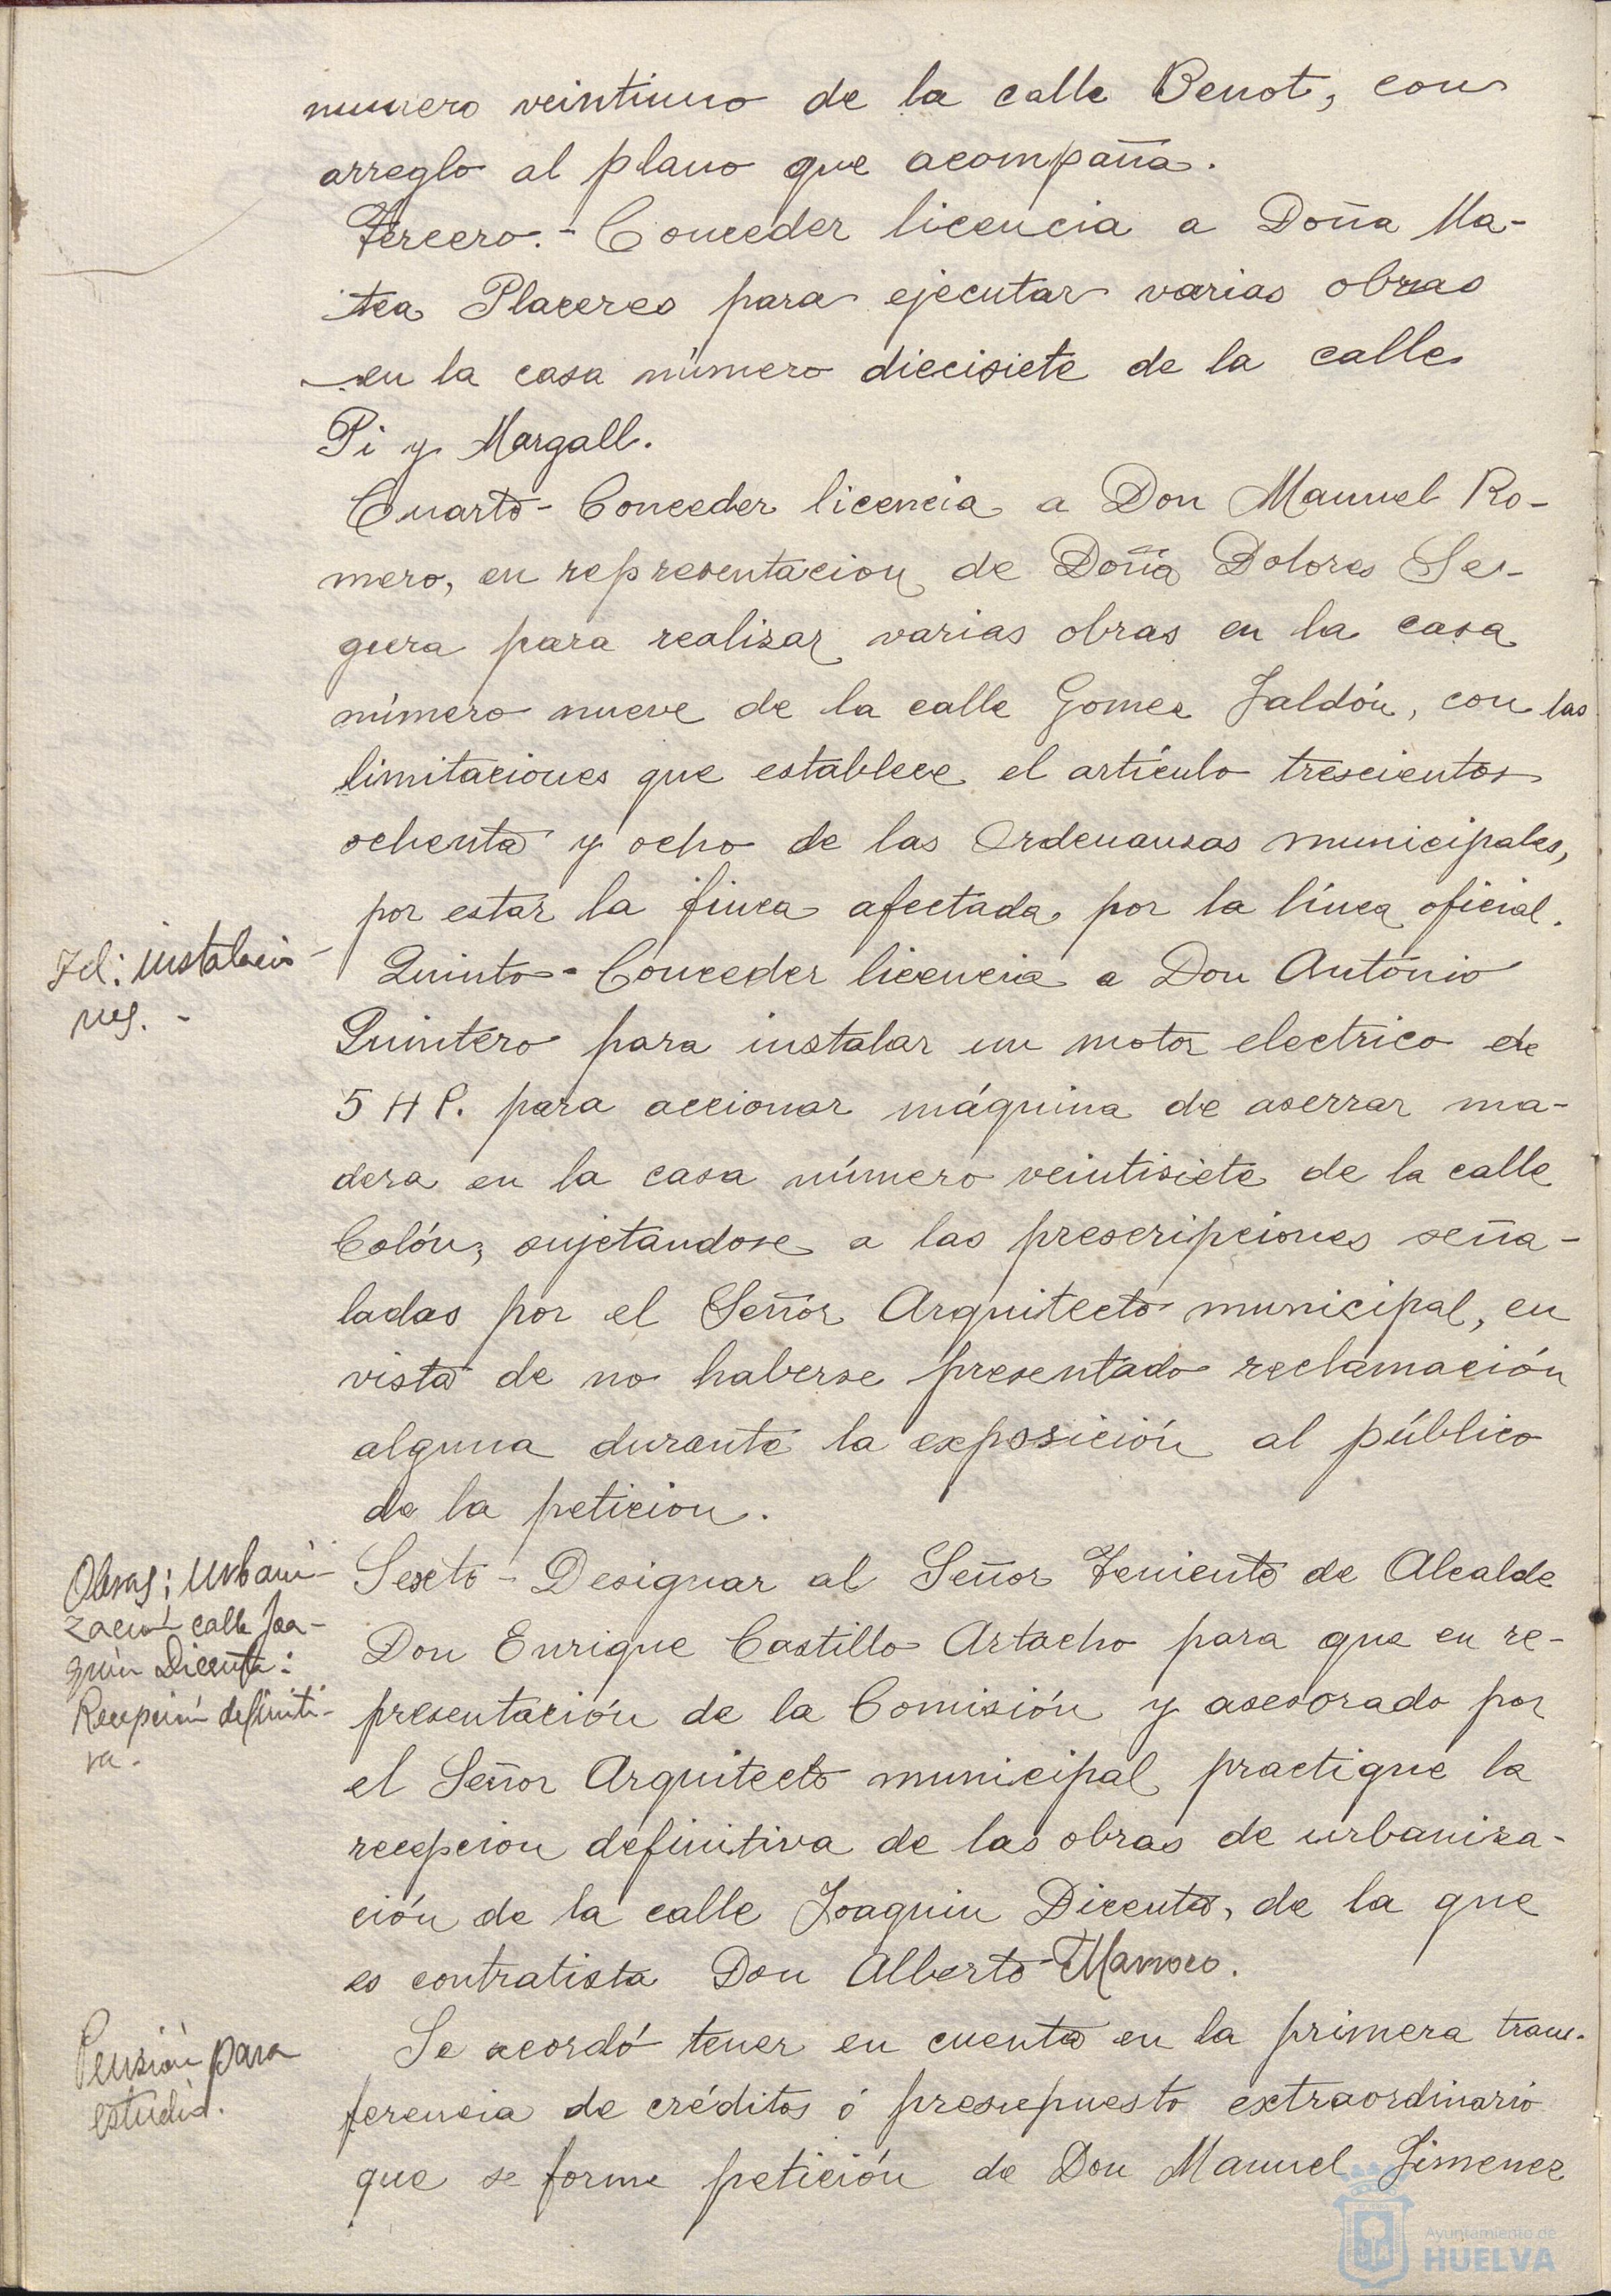 numero veintiuno de la calle Benot, con
arreglo al plano que acompaña.
Tercero.- Conceder licencia a Doña Ma-
tea Placeres para ejecutar varias obras
en la casa número diecisiete de la calle
Pi y Margall.
Cuarto- Conceder licencia a Don Manuel Ro-
mero, en representacion de Doña Dolores Se-
gura para realizar varias obras en la casa
número nueve de la calle Gomez Jaldón, con las
limitaciones que establece el artículo trescientos
ochenta y ocho de las Ordenanzas municipales,
por estar la finca afectada por la línea oficial.
Id: instalacio-
nes.-
Quinto- Conceder licencia a Don Antonio
Quintero para instalar un motor electrico de
5 H P. para accionar máquina de aserrar ma-
dera en la casa número veintisiete de la calle
Colón, sujetandose a las prescripciones seña-
ladas por el Señor Arquitecto municipal, en
vista de no haberse presentado reclamación
alguna durante la exposición al público
de la peticion.
Obras; urbani-
zación calle Joa-
quin Dicenta:
Recepción definiti-
va.
Sexto- Designar al Señor Teniente de Alcalde
Don Enrique Castillo Artacho para que en re-
presentación de la Comisión y asesorado por
el Señor Arquitecto municipal practique la
recepcion definitiva de las obras de urbaniza-
ción de la calle Joaquin Dicenta, de la que
es contratista Don Alberto
Pensión para
estudio.
Se acordó tener en cuenta en la primera trans-
ferencia de créditos ó presupuesto extraordinario
que se forme petición de Don Manuel Jimenez
Ayuntamiento de
HUELVA